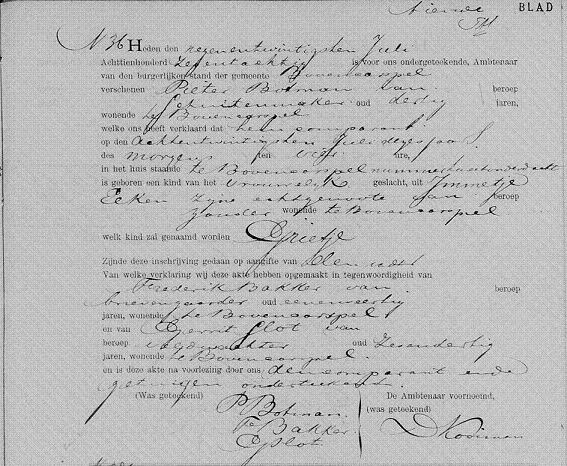 BLAD
N 36 Heden den negenentwintigsten Juli
Achttienhonderd zeventachtig is voor ons ondergeteekende, Ambtenaar
van den burgerlijken stand der gemeente Bovencarspel
verschenen Pieter Botman van beroep
Schuitenmaker oud dertig jaren,
wonende te Bovencarspel
welke ons heeft verklaard dat hem comparant
op den Achtentwintigsten Juli dezes jaars
des morgens ten vijf ure,
in het huis staande te Bovencarspel nummer
is geboren een kind van het vrouwelijk geslacht, uit Immetje
zijne echtgenoote van beroep
zonder wonende te Bovencarspel
welk kind zal genaamd worden Grietje
Zijnde deze inschrijving gedaan op aangifte van den vader
Van welke verklaring wij deze akte hebben opgemaakt in tegenwoordigheid van
Frederik Bakker van beroep
brievengaarder oud eenenveertig
jaren, wonende te Bovencarspel
en van Gerrit Slot van
beroep oud zesendertig
jaren, wonende te Bovencarspel.
en is deze akte na voorlezing door ons, den comparant ende
getuigen onderteekend.
(Was geteekend)
P Botman.
F Bakker
G Slot
De Ambtenaar voornoemd,
(was geteekend)
D Kooiman